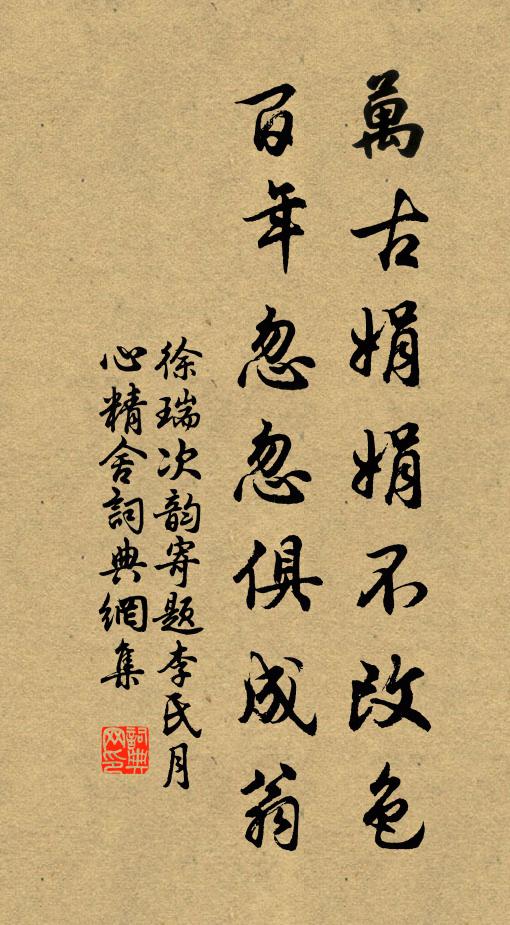 萬古娟娟不改色
百年忽忽俱成翁
徐瑞次韵寄题李氏月
心精舍詞典網集
詞典网印